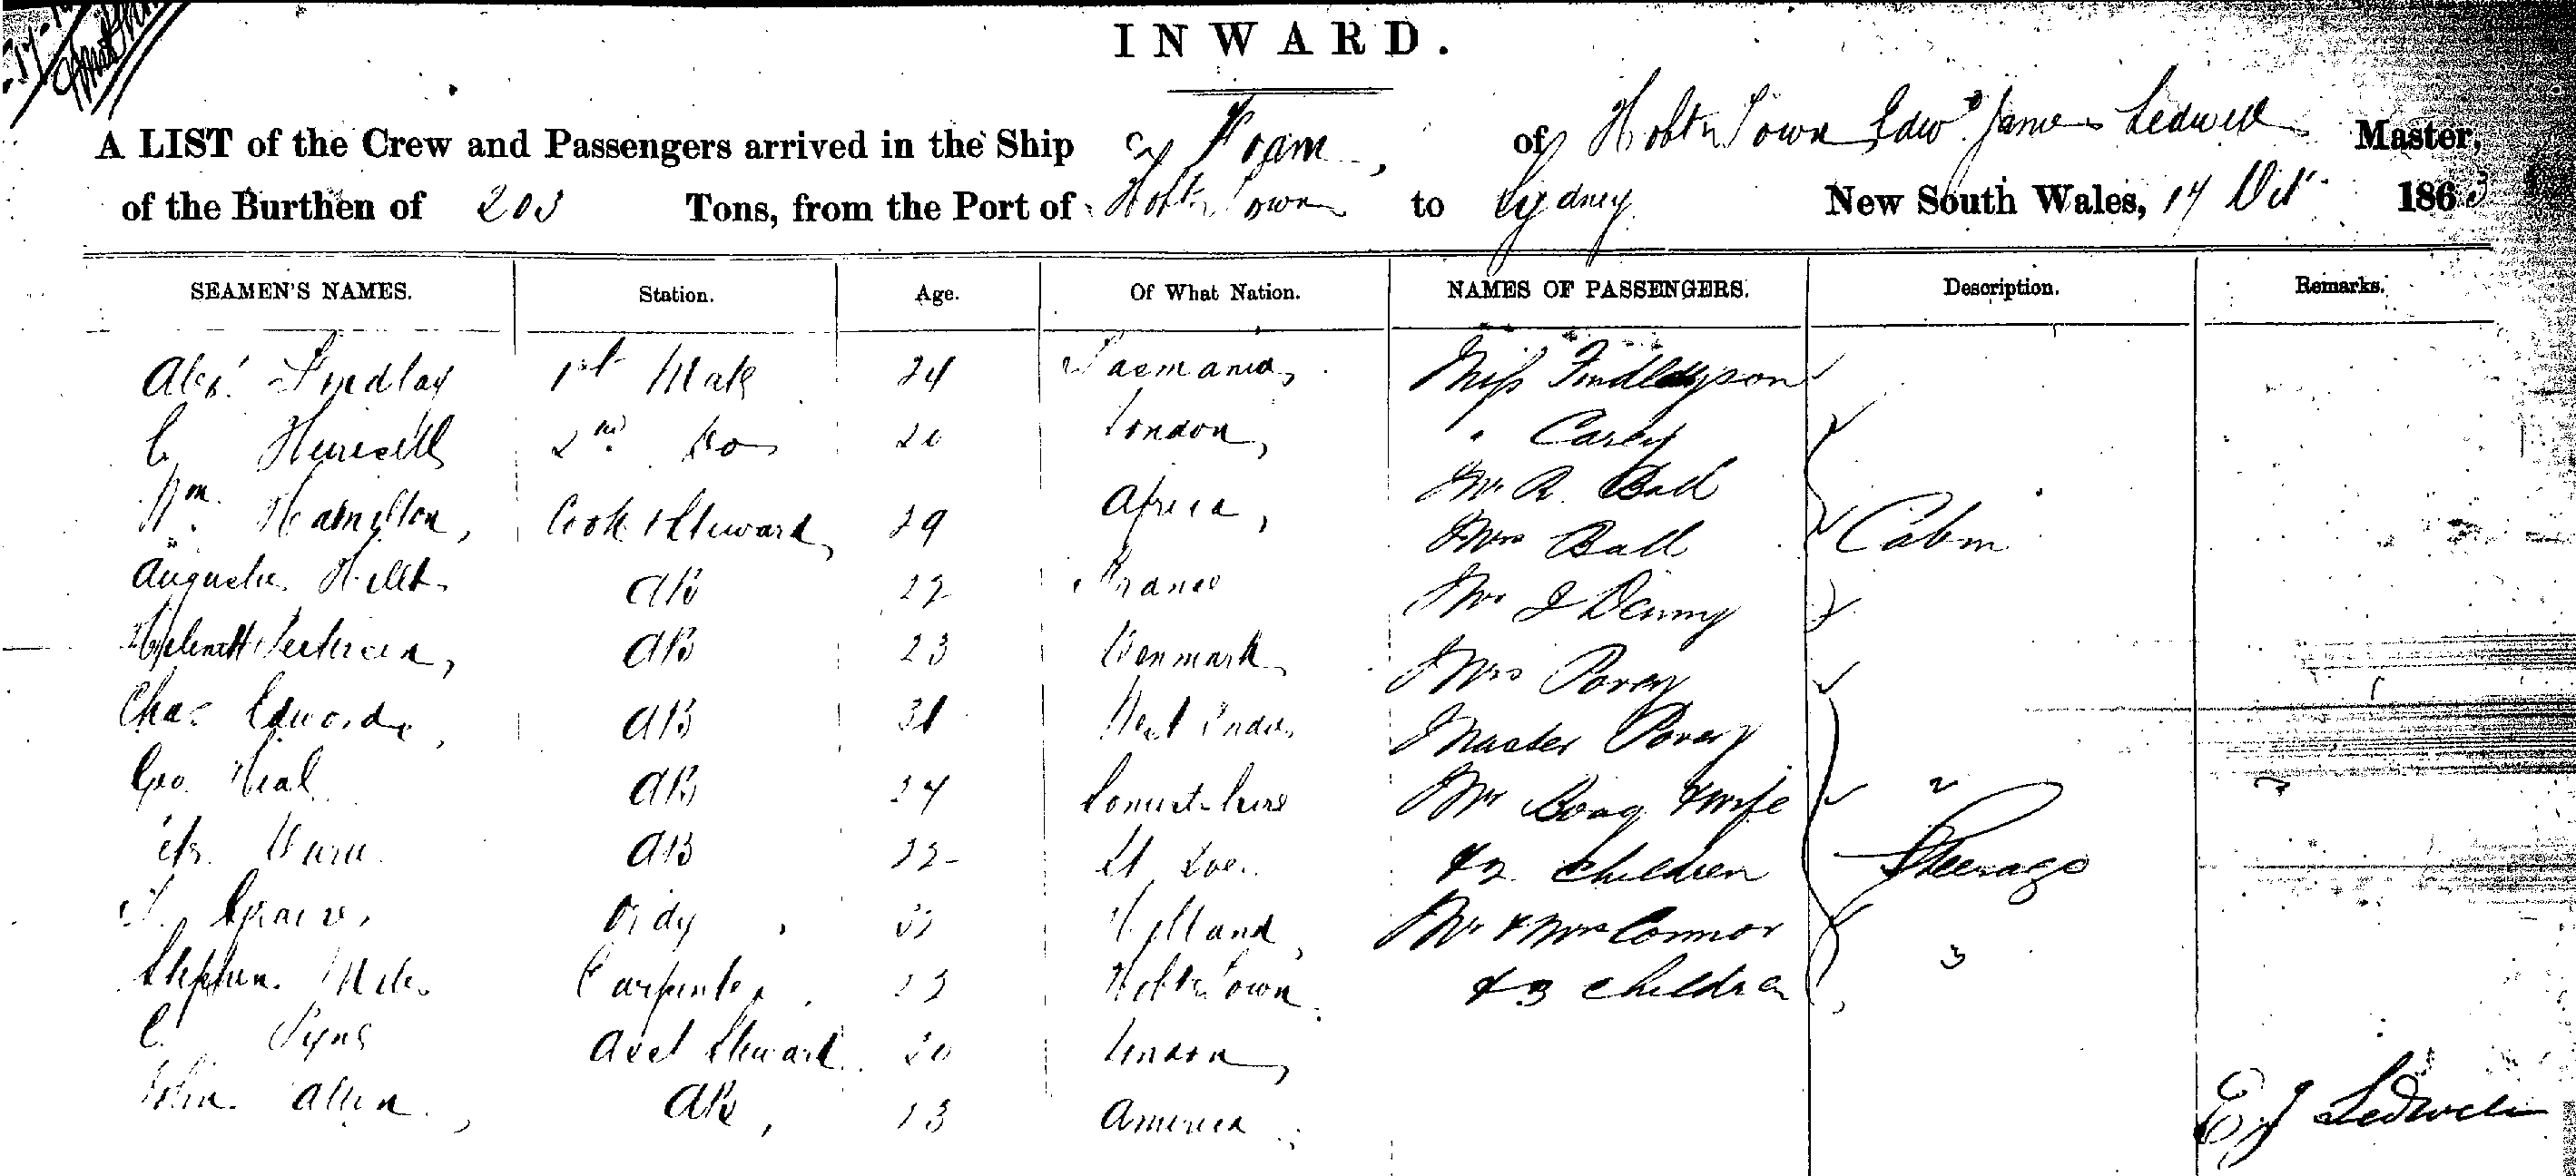 INWARD.
A LIST of the Crew and Passengers arrived in the Ship Foam, of Hobt Town Edwd James Ledwell Master,
of the Burthen of 203 Tons, from the Port of Hobt Town to Sydney New South Wales, 17 Oct 1863
SEAMEN'S NAMES. Station. Age. Of What Nation. NAMES OF PASSENGERS. Description. Remarks.
Alexr Findlay 1st Mate 24 Tasmania, Miss Findlayson
C 2nd Do 20 London, " Carey
Wm. Hamilton, Cook & Steward, 29 Africa, Mr R. Ball
Mrs Ball Cabin
AB 22 France Mr J Denny
AB 23 Denmark Mrs Povey
Chas Edwards, AB 31 West Indies Master Povey
Geo. Neal AB 24 Somersetshire Mr Boag & wife 2
AB 22 & 2 children Steerage
Ordy Holland, Mr & Mrs Connor
Stephen Carpenter, 23 Hobt Town & 3 children 3
C. Syns Asst Steward 20 London,
John Allen, AB, 23 America
E J Ledwell